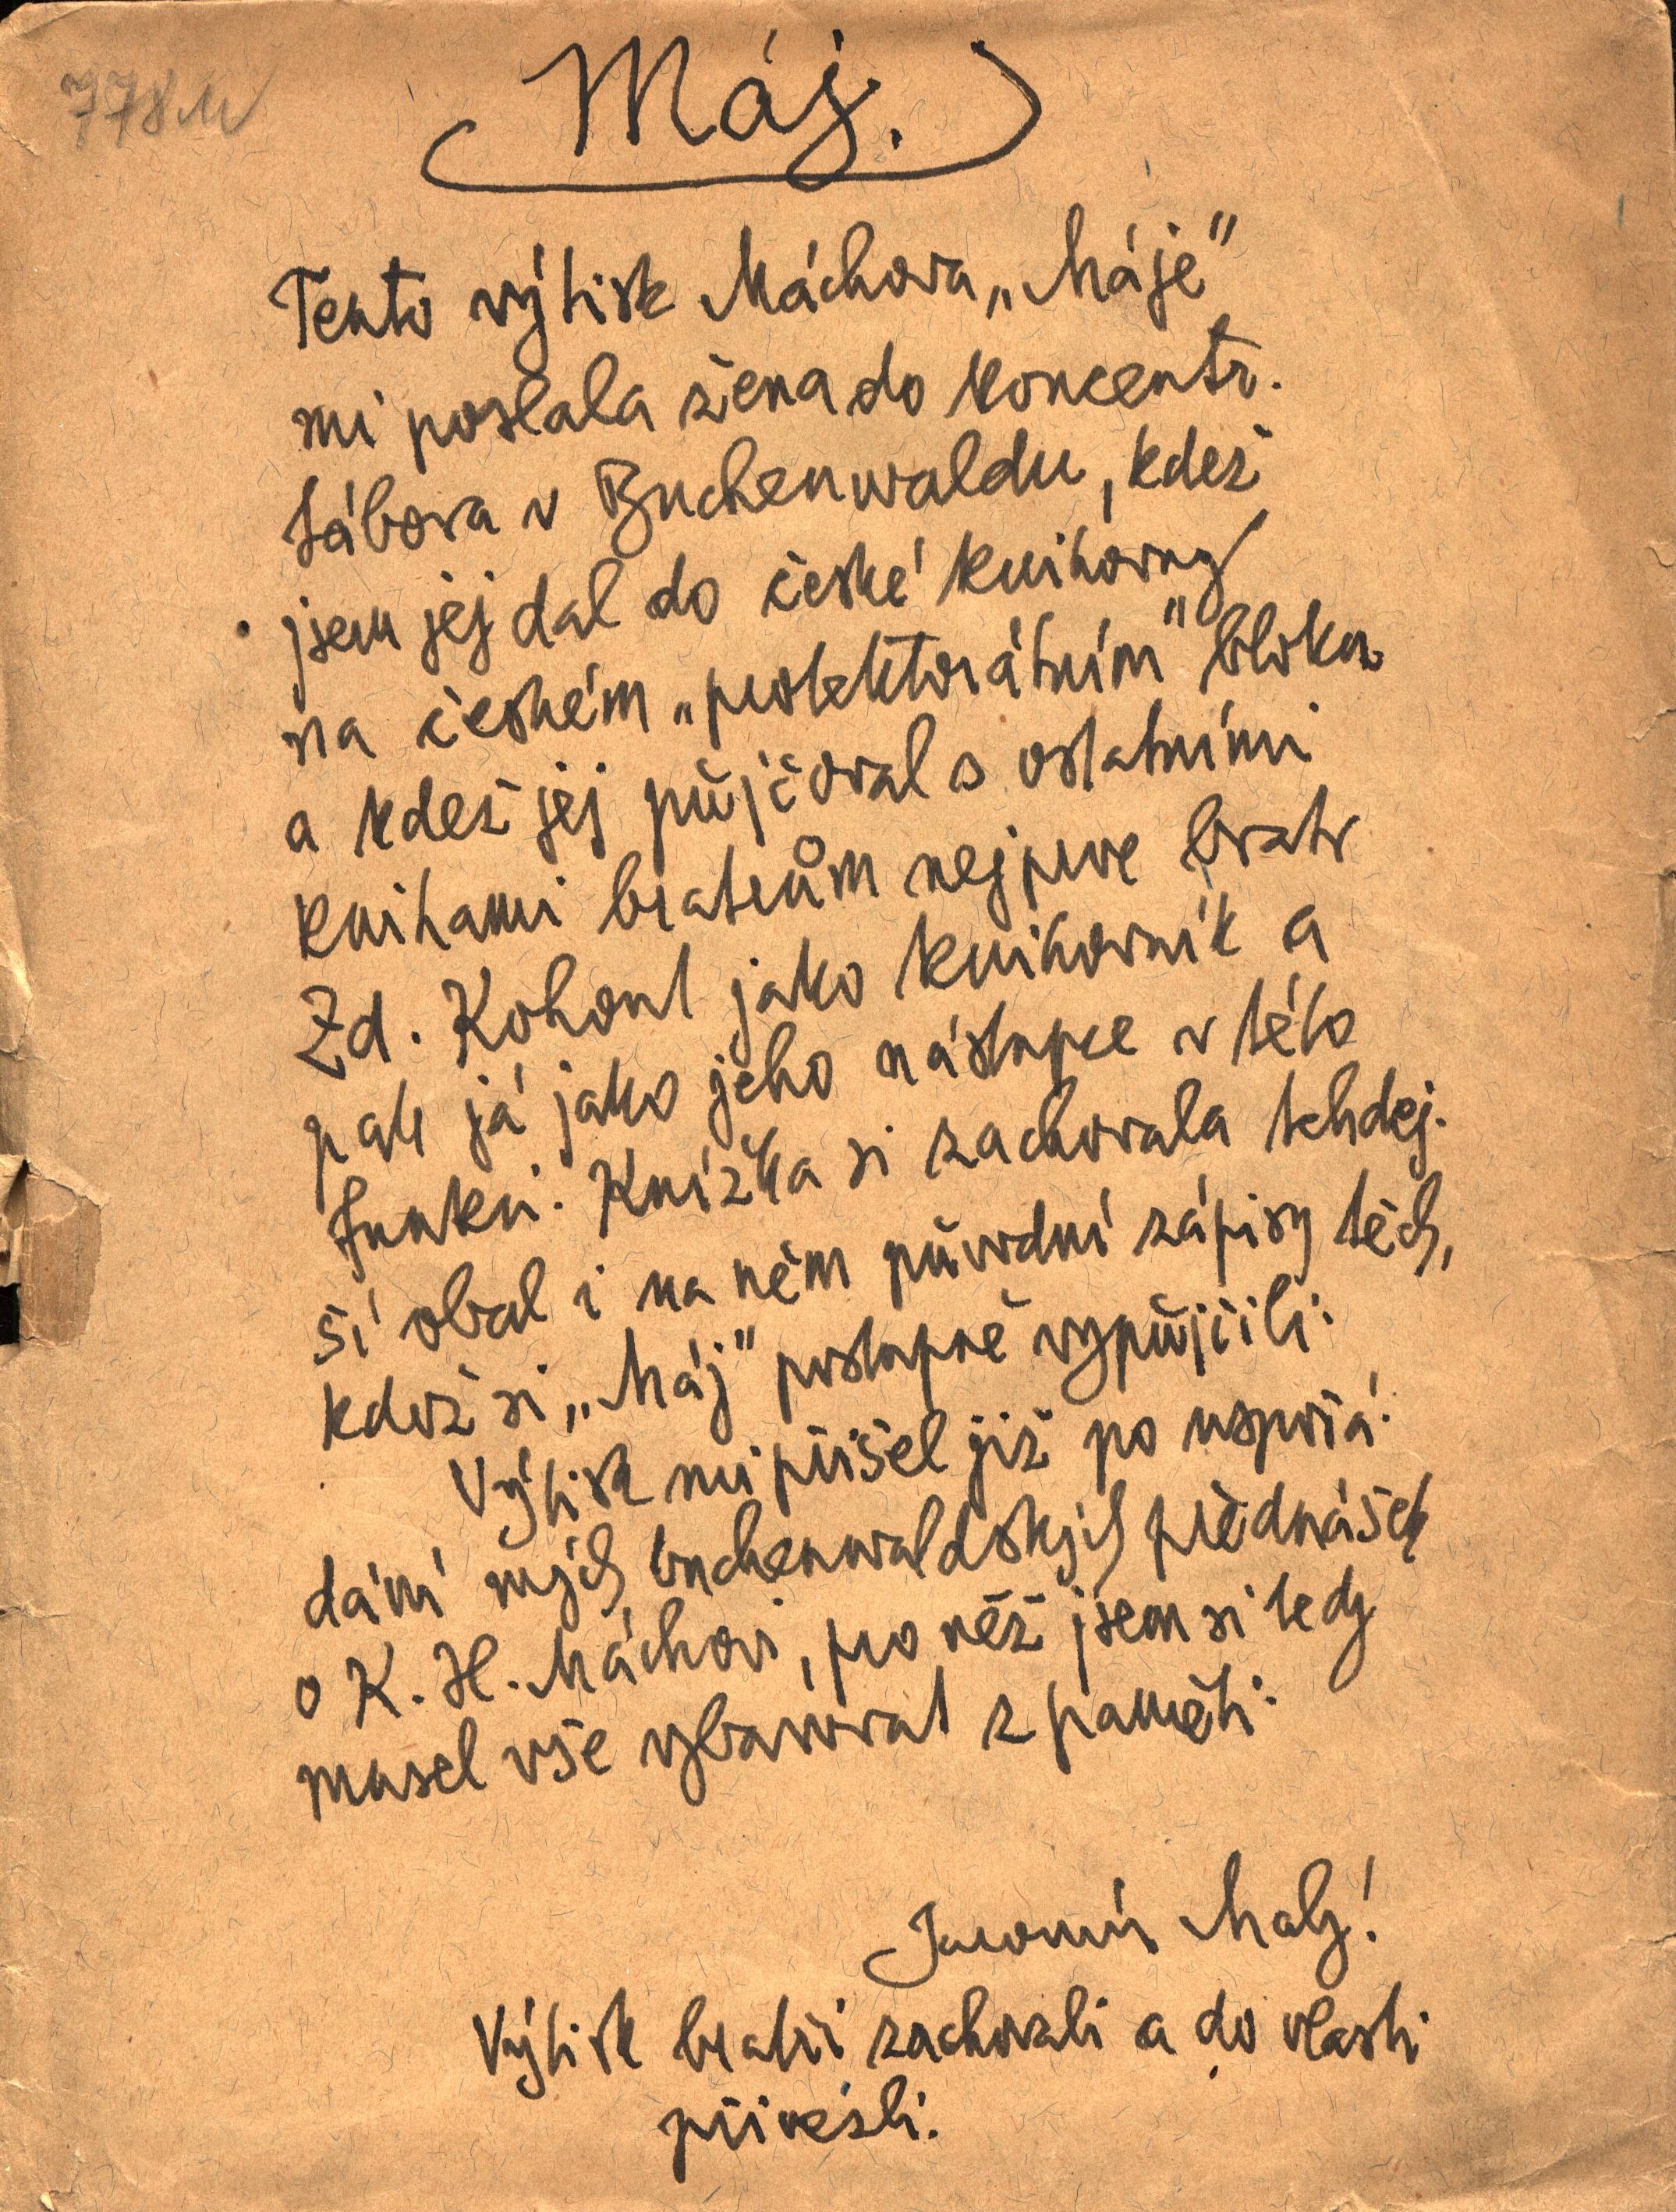 778
Máj.
Tento výtisk Máchova „Máje"
mi poslala žena do koncentr.
tábora v Buchenwaldu, kdež
jsem jej dal do české knihovny
na českém „protektorátním" bloku
a kdež jej půjčoval s ostatními
knihami bratrům nejprve bratr
Zd. Kohout jako knihovník a
pak já jako jeho nástupce v této
funkci. Knížka si zachovala tehdej-
ší obal i na něm původní zápisy těch,
kdož si „Máj" postupně vypůjčili.
Výtisk mi přišel již po uspořá-
dání mých buchenwaldských přednášek
o K. H. Máchovi, pro něž jsem si tedy
musel vše vybavovat z paměti.
Jaromír Malý!
Výtisk bratři zachovali a do vlasti
přivezli.